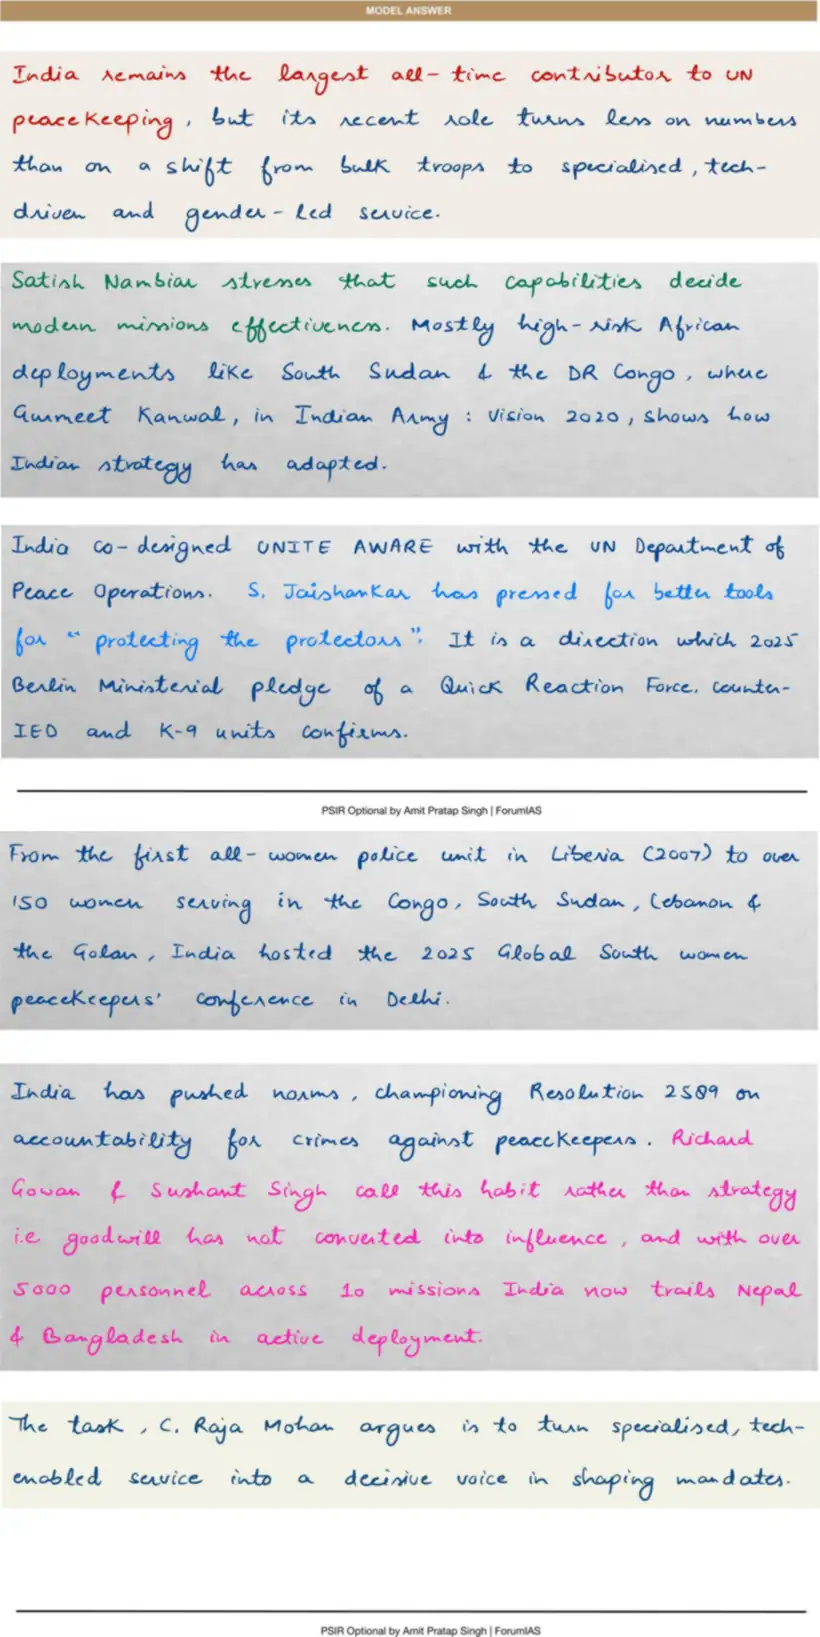 MODEL ANSWER
India remains the largest all-time contributor to UN
peacekeeping, but its recent role turns less on numbers
than on a shift from bulk troops to specialised, tech-
driven and gender-led service.
Satish Nambiar stresses that such capabilities decide
modern missions effectiveness. Mostly high-risk African
deployments like South Sudan & the DR Congo, where
Gurmeet Kanwal, in Indian Army : Vision 2020, shows how
Indian strategy has adapted.
India co-designed UNITE AWARE with the UN Department of
Peace Operations. S. Jaishankar has pressed for better tools
for "protecting the protectors". It is a direction which 2025
Berlin Ministerial pledge of a Quick Reaction Force, counter-
IED and K-9 units confirms.
PSIR Optional by Amit Pratap Singh | ForumIAS
From the first all-women police unit in Liberia (2007) to over
150 women serving in the Congo, South Sudan, Lebanon &
the Golan, India hosted the 2025 Global South women
peacekeepers' conference in Delhi.
India has pushed norms, championing Resolution 2589 on
accountability for crimes against peacekeepers. Richard
Gowan & Sushant Singh call this habit rather than strategy
i.e goodwill has not converted into influence, and with over
5000 personnel across 10 missions India now trails Nepal
& Bangladesh in active deployment.
The task, C. Raja Mohan argues is to turn specialised, tech-
enabled service into a decisive voice in shaping mandates.
PSIR Optional by Amit Pratap Singh | ForumIAS